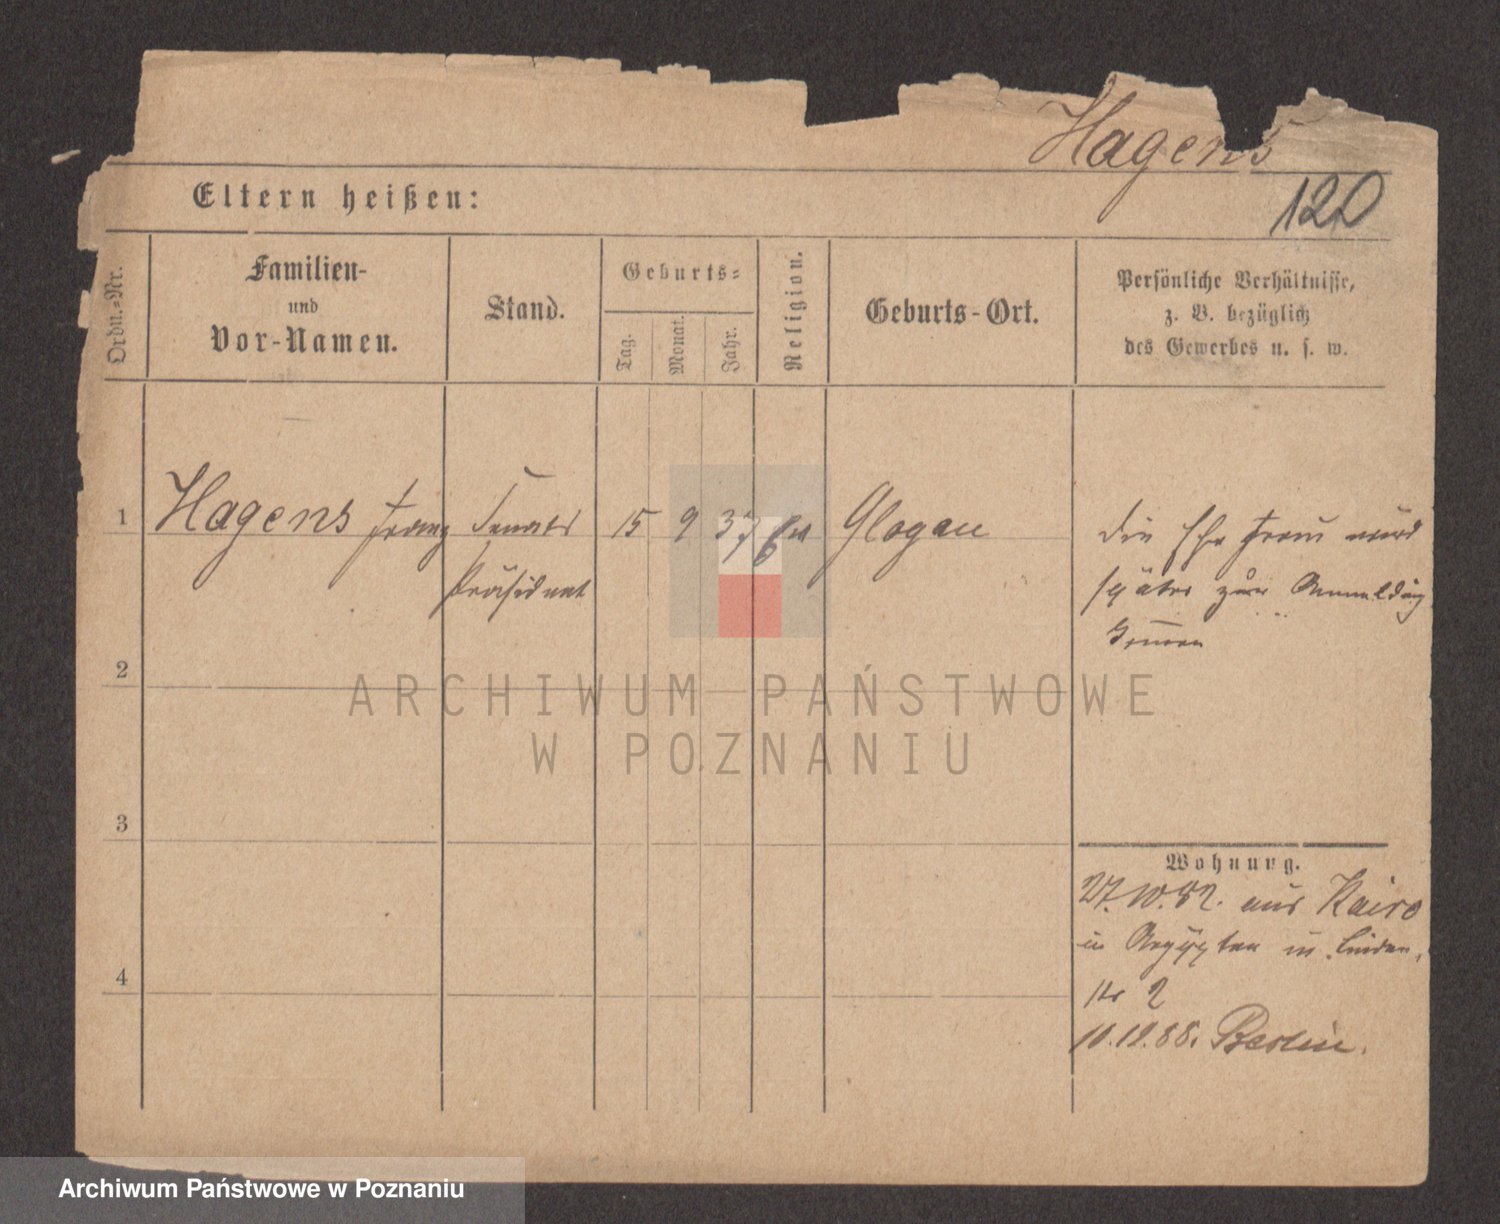 Hagens
120
Eltern heißen:
Ordn.=Nr.
Familien-
und
Vor-Namen.
Stand.
Geburts=
Tag.
Monat.
Jahr.
Religion.
Geburts-Ort.
Persönliche Verhältnisse,
z. B. bezüglich
des Gewerbes u. s. w.
1
Hagens Franz
Senats
Präsident
15
9
37
Glogau
die Ehefrau wird
später zur Anmeldung
2
3
4
Wohnung.
27.10.82. aus Kairo
in Aegypten in Linden
str 2
10.12.88. Berlin.
ARCHIWUM PAŃSTWOWE
W POZNANIU
Archiwum Państwowe w Poznaniu